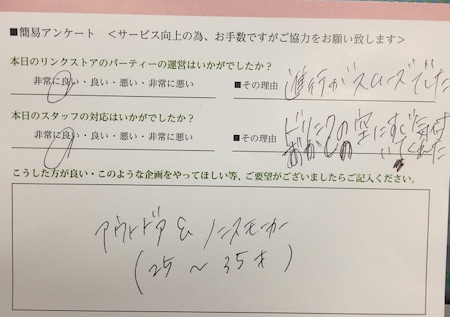 ■簡易アンケート <サービス向上の為、お手数ですがご協力をお願い致します>
本日のリンクストアのパーティーの運営はいかがでしたか?
非常に良い・良い・悪い・非常に悪い ■その理由 進行がスムーズでした
本日のスタッフの対応はいかがでしたか?
非常に良い・良い・悪い・非常に悪い ■その理由 ドリンクの空にすぐ気付
いてくれた
こうした方が良い・このような企画をやってほしい等、ご要望がございましたらご記入ください。
アウトドア & ノンスモーカー
(25 ~ 35才)